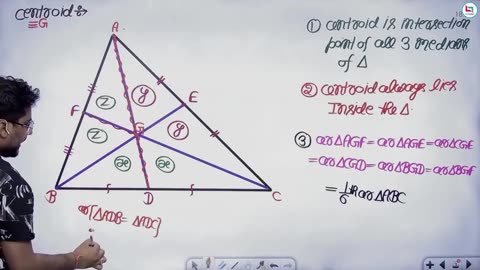 Centroid :-
≡G
A
F
E
G
z
y
z
y
x
x
B
D
C
ar[△ADB = △ADC]
① Centroid is intersection
point of all 3 medians
of △
② Centroid always lies
Inside the △.
③ ar△AGF = ar△AGE = ar△CGE
= ar△CGD = ar△BGD = ar△BGF
= 1/6 * ar△ABC